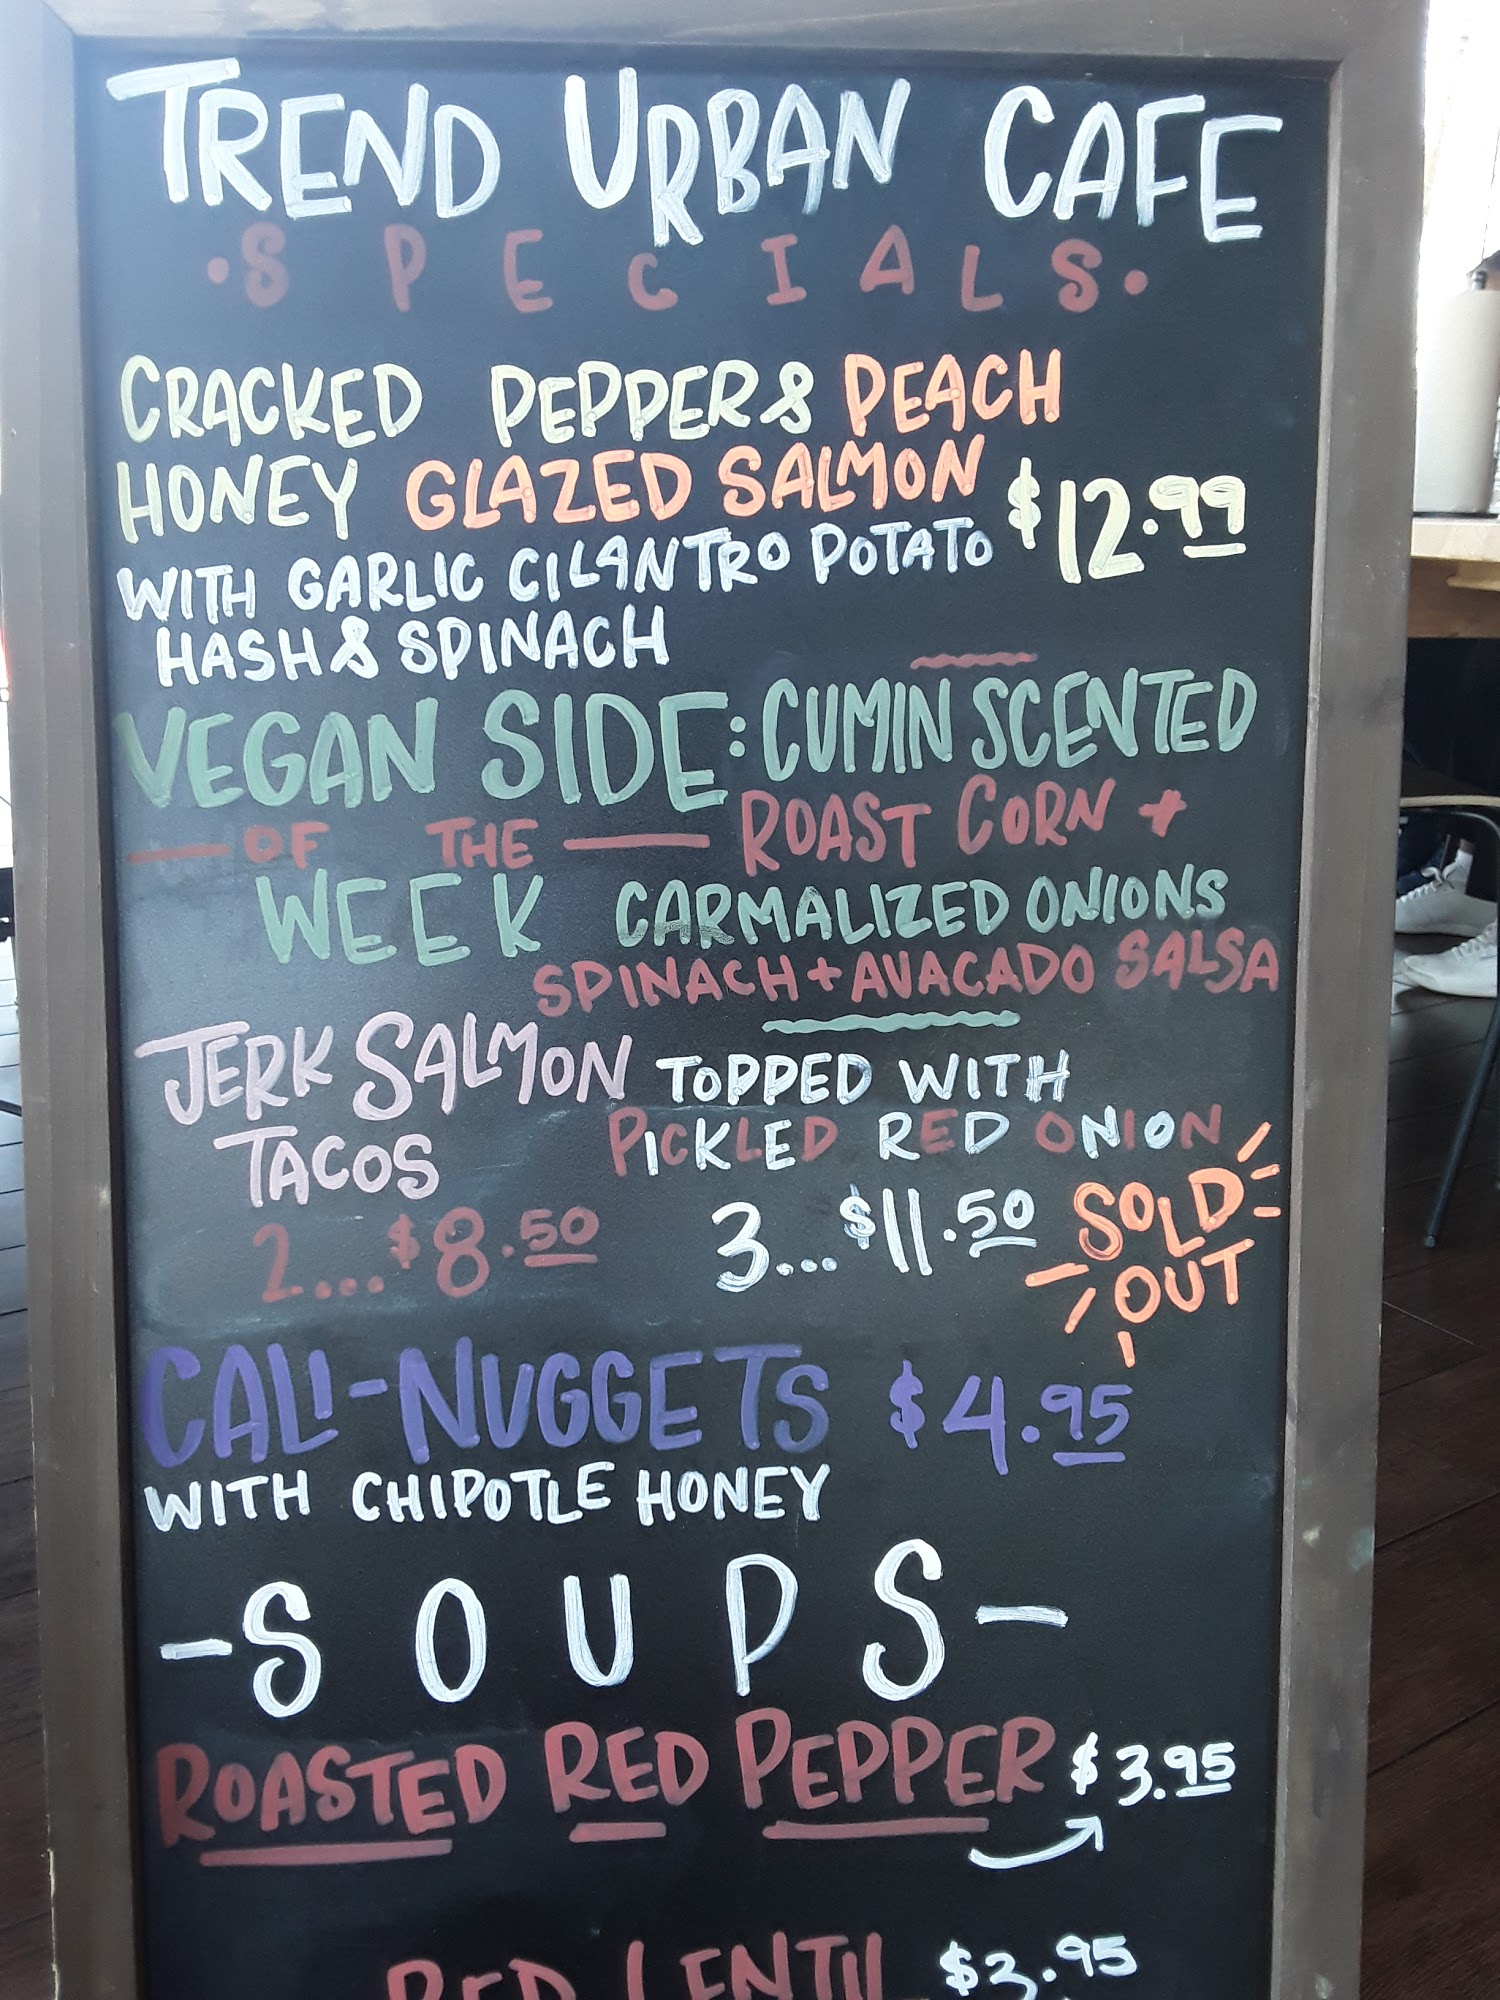 TREND URBAN CAFE
·SPECIALS·
CRACKED PEPPER & PEACH
HONEY GLAZED SALMON $12.99
WITH GARLIC CILANTRO POTATO
HASH & SPINACH
VEGAN SIDE: CUMIN SCENTED
OF THE ROAST CORN +
WEEK CARMALIZED ONIONS
SPINACH + AVACADO SALSA
JERK SALMON TOPPED WITH
TACOS PICKLED RED ONION
2...$8.50 3...$11.50 SOLD
OUT
CALI-NUGGETS $4.95
WITH CHIPOTLE HONEY
-SOUPS-
ROASTED RED PEPPER $3.95
RED LENTIL $3.95